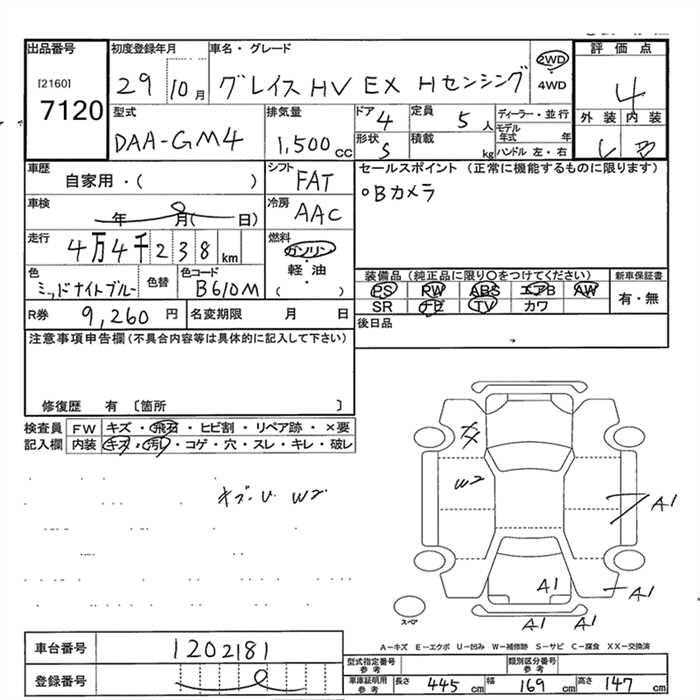 出品番号
[2160]
7120
初度登録年月
29 10月
車名・グレード
グレイスHV EX Hセンシング
2WD
4WD
評価点
4
型式
DAA-GM4
排気量
1,500cc
ドア
4
定員
5人
形状
S
積載
kg
ディーラー・並行
モデル年式 年
ハンドル 左・右
外装 内装
B
車歴
自家用・( )
シフト
FAT
セールスポイント (正常に機能するものに限ります)
○Bカメラ
車検
年 月( 日)
冷房
AAC
走行
4万4千238km
燃料
ガソリン
軽・油
( )
色
ミッドナイトブルー
色替
色コード
B610M
装備品 (純正品に限り○をつけてください)
PS PW ABS エアB AW
SR ナビ TV カワ
新車保証書
有・無
R券 9,260円
名変期限 月 日
後日品
注意事項申告欄 (不具合内容等は具体的に記入して下さい)
修復歴 有 〔箇所 〕
検査員
記入欄
FW キズ・飛石・ヒビ割・リペア跡・×要
内装 キズ・汚れ・コゲ・穴・スレ・キレ・破レ
キズ・U W2
W2
A1
A1
A1
A1 A1
スペア
A-キズ E-エクボ U-凹み W-補修跡 S-サビ C-腐食 XX-交換済
車台番号
1202181
登録番号
型式指定番号
参考
類別区分番号
参考
車庫証明用
参考
長さ 445cm 幅 169cm 高さ 147cm